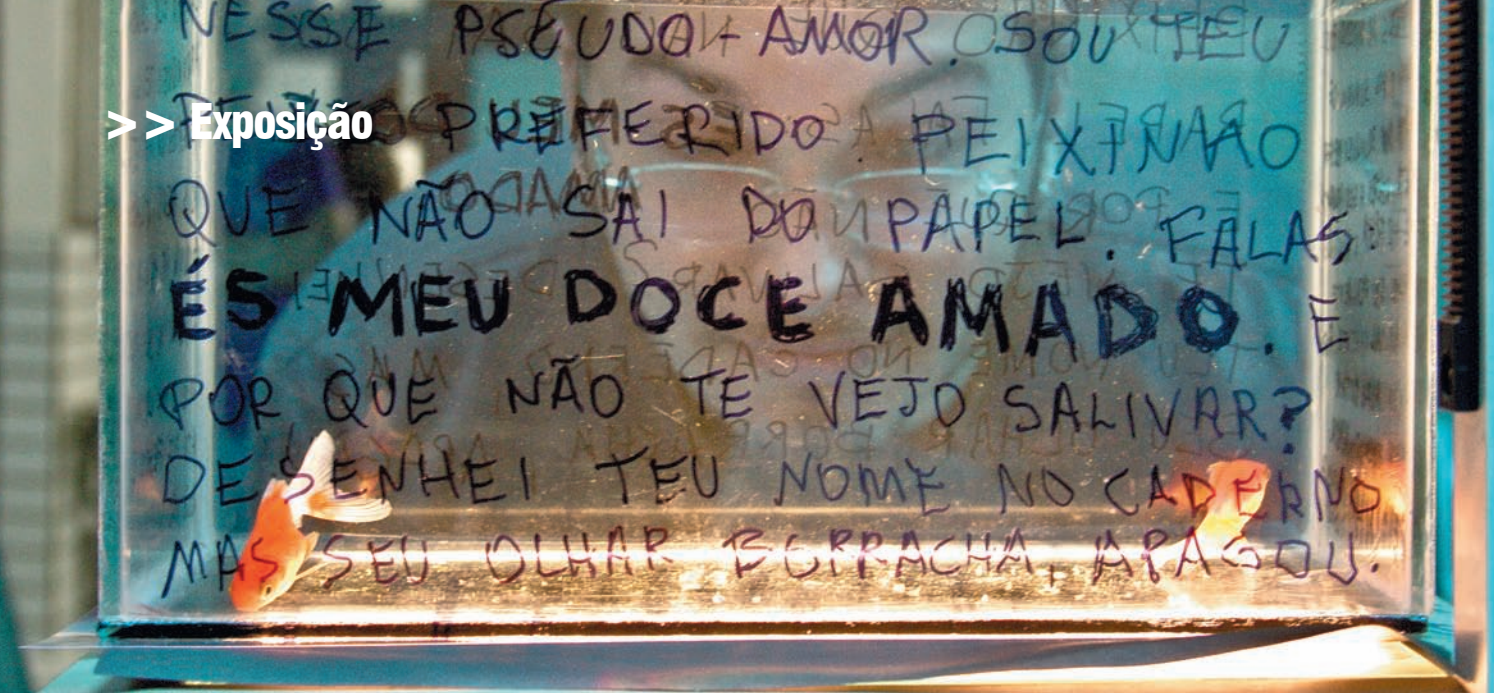 NESSE PSEUDO-AMOR. SOU TEU
>> Exposição
PEIXE PREFERIDO. PEIXINHO
QUE NÃO SAI DO PAPEL. FALAS:
ÉS MEU DOCE AMADO. E
POR QUE NÃO TE VEJO SALIVAR?
DESENHEI TEU NOME NO CADERNO
MAS SEU OLHAR BORRACHA, APAGOU.